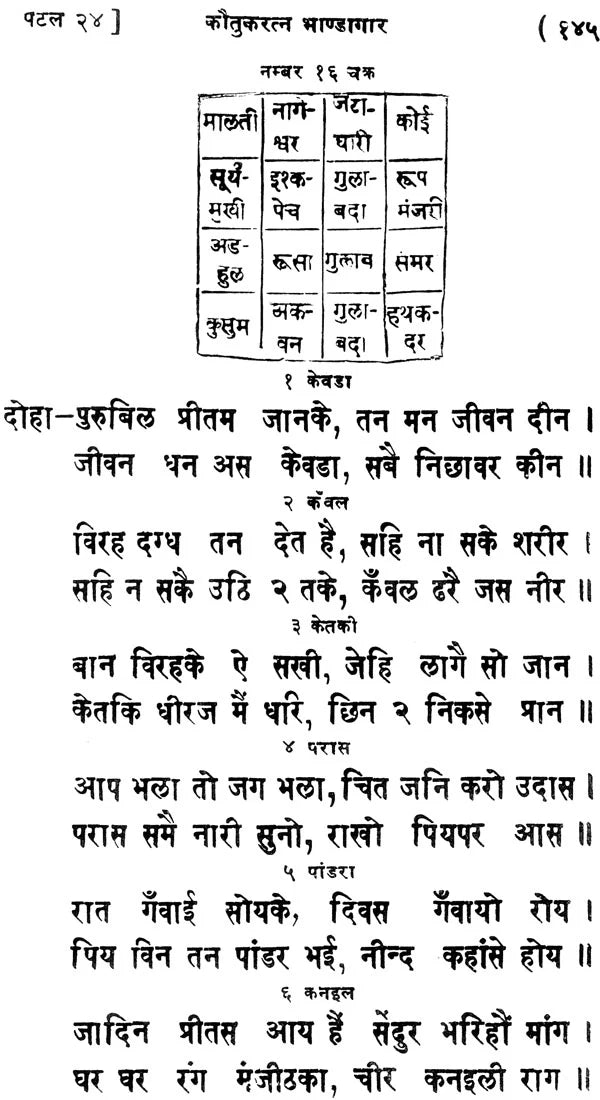 पटल २४ ] कौतुकरत्न भाण्डागार ( १४५
नम्बर १६ चक्र
मालती नागे- जटा- कोई
श्वर धारी
सूर्य- इश्क- गुला- रूप
मुखी पेच बदा मंजरी
अड- रूसा गुलाव संमर
हुल
कुसुम अक- गुला- हथक-
वन बदा दर
१ केवडा
दोहा–पुरुबिल प्रीतम जानके, तन मन जीवन दीन ।
जीवन धन अस केवडा, सबै निछावर कीन ॥
२ कँवल
विरह दग्ध तन देत है, सहि ना सके शरीर ।
सहि न सकै उठि २ तके, कँवल ढरै जस नीर ॥
३ केतकी
बान विरहके ऐ सखी, जेहि लागै सो जान ।
केतकि धीरज मैं धरि, छिन २ निकसे प्रान ॥
४ परास
आप भला तो जग भला, चित जनि करो उदास ।
परास समै नारी सुनो, राखो पियपर आस ॥
५ पांडरा
रात गँवाई सोयके, दिवस गँवायो रोय ।
पिय विन तन पांडर भई, नीन्द कहांसे होय ॥
६ कनइल
जादिन प्रीतस आय हैं सेंदुर भरिहौं मांग ।
घर घर रंग मंजीठका, चीर कनइली राग ॥